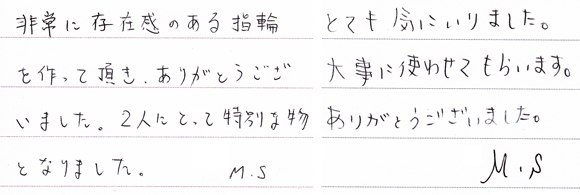 非常に存在感のある指輪
を作って頂き、ありがとうござ
いました。2人にとって特別な物
となりました。 M.S
とても気にいりました。
大事に使わせてもらいます。
ありがとうございました。
M.S